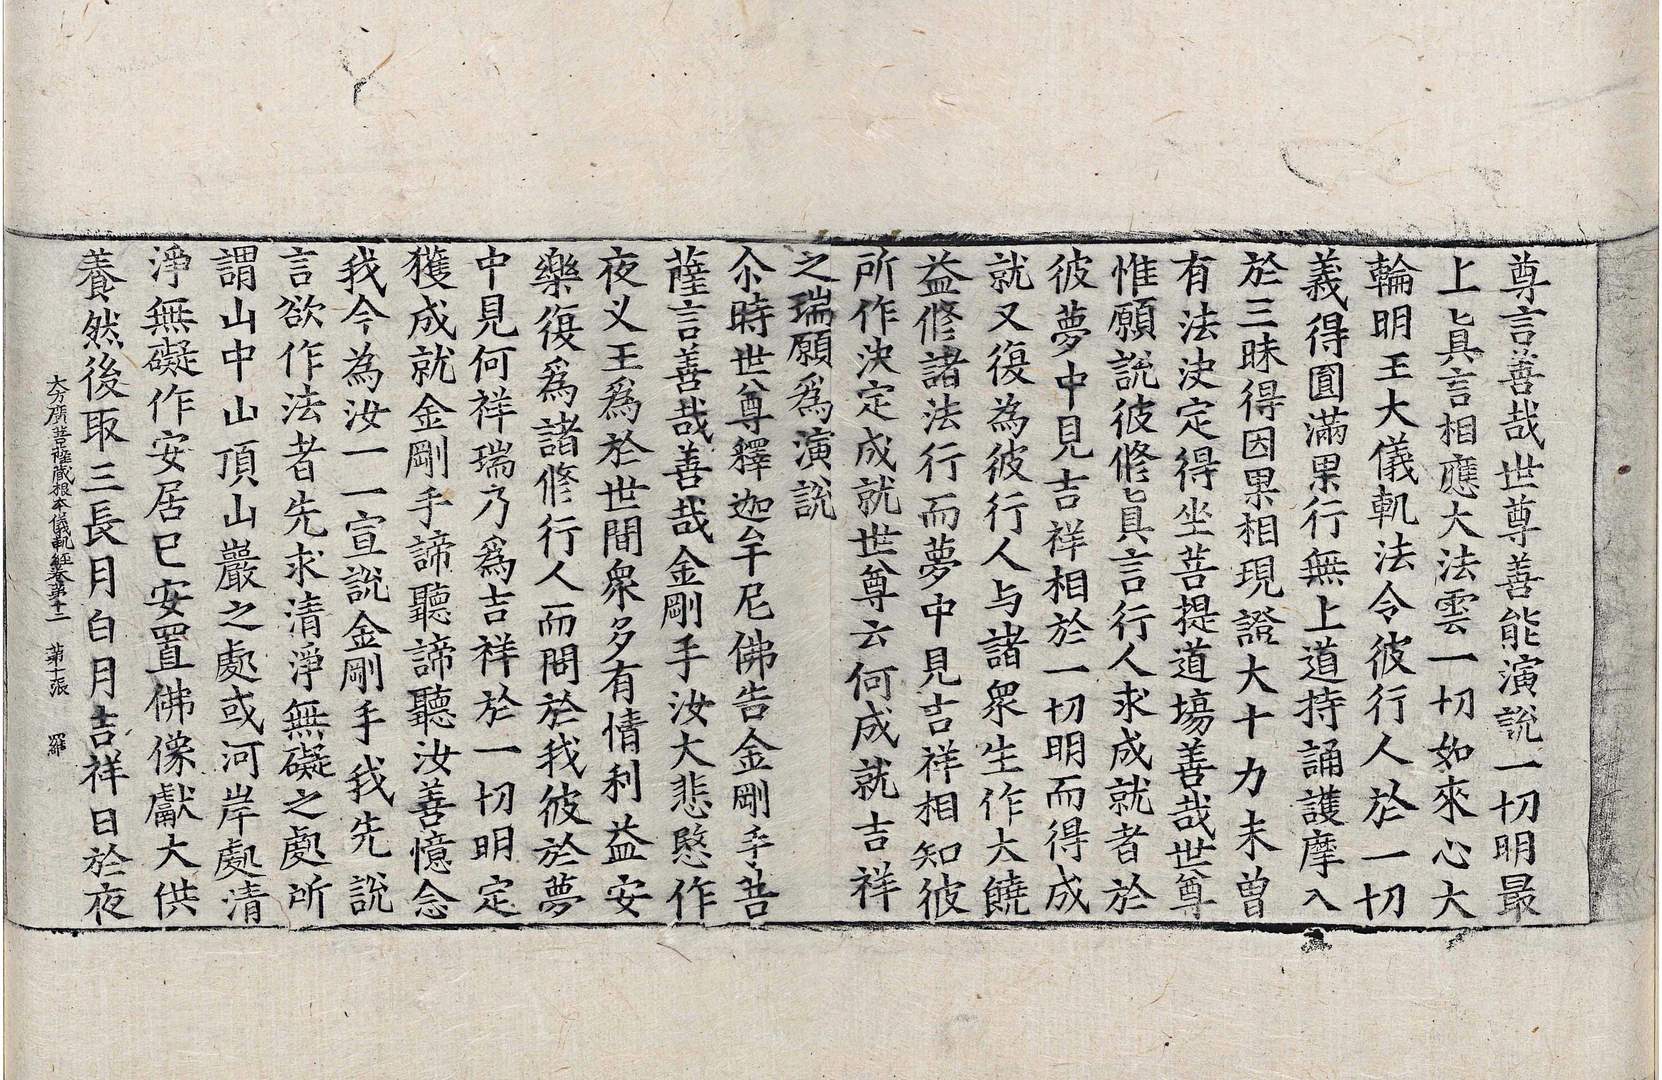 尊言善哉世尊善能演說一切明最
上真言相應大法雲一切如來心大
輪明王大儀軌法令彼行人於一切
義得圓滿果行無上道持誦護摩入
於三昧得因果相現證大十力未曾
有法決定得坐菩提道場善哉世尊
惟願說彼修真言行人求成就者於
彼夢中見吉祥相於一切明而得成
就又復為彼行人与諸衆生作大饒
益修諸法行而夢中見吉祥相知彼
所作決定成就世尊云何成就吉祥
之瑞願爲演說
尒時世尊釋迦牟尼佛告金剛手菩
薩言善哉善哉金剛手汝大悲愍作
夜叉王爲於世間衆多有情利益安
樂復爲諸修行人而問於我彼於夢
中見何祥瑞乃爲吉祥於一切明定
獲成就金剛手諦聽諦聽汝善憶念
我今為汝一一宣說金剛手我先說
言欲作法者先求清淨無礙之處所
謂山中山頂山巖之處或河岸處清
淨無礙作安居已安置佛像獻大供
養然後取三長月白月吉祥日於夜
大方廣菩薩藏根本儀軌經卷第十二　第十張　羅